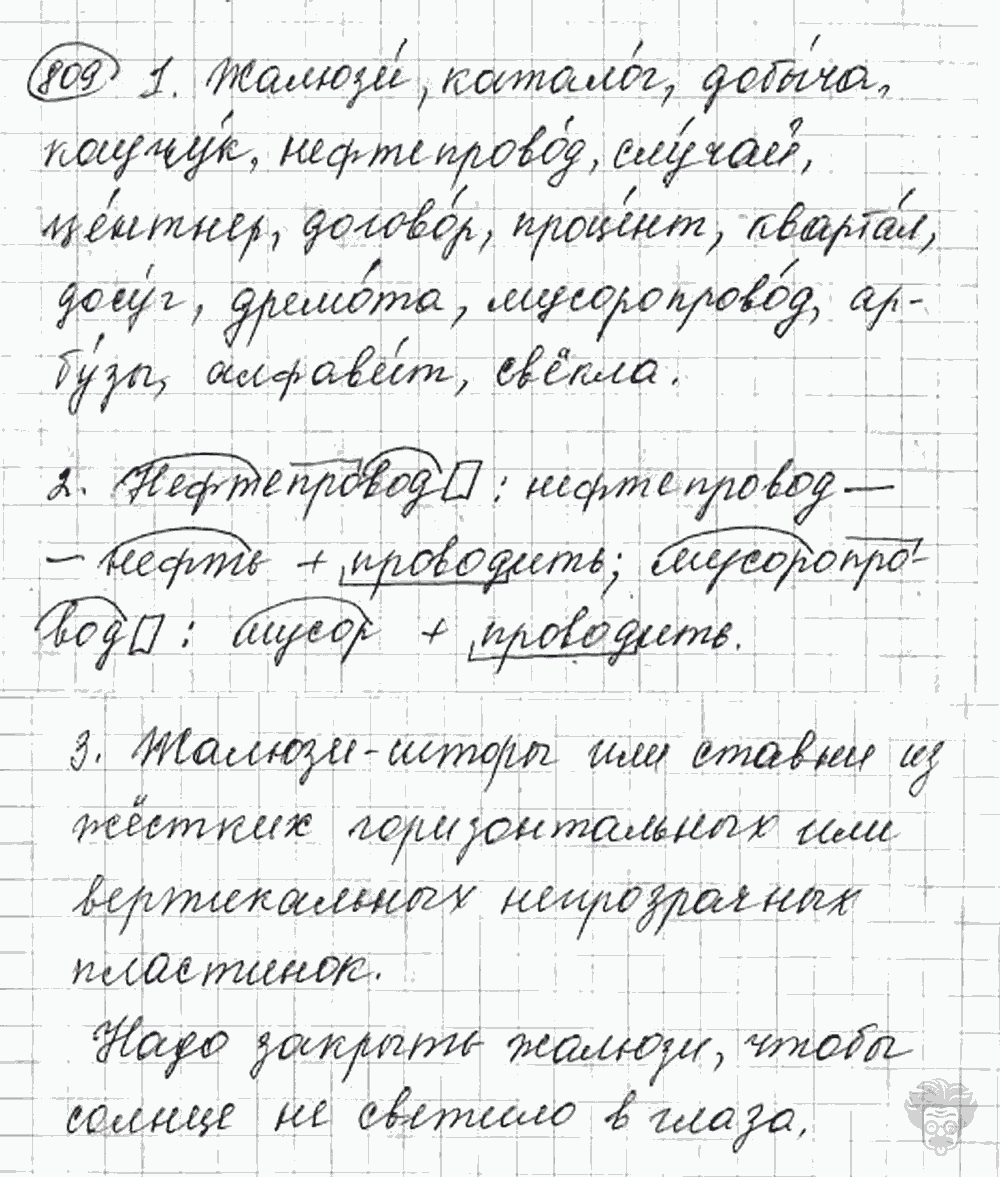 809 1. Жалюзи́, катало́г, добы́ча,
каучу́к, нефтепрово́д, слу́чай,
це́нтнер, догово́р, проце́нт, кварта́л,
досу́г, дремо́та, мусоропрово́д, ар-
бу́зы, алфави́т, свёкла.
2. Нефтепровод□: нефтепровод —
— нефть + проводить; мусоропро-
вод□: мусор + проводить.
3. Жалюзи - шторы или ставни из
жёстких горизонтальных или
вертикальных непрозрачных
пластинок.
Надо закрыть жалюзи, чтобы
солнце не светило в глаза.